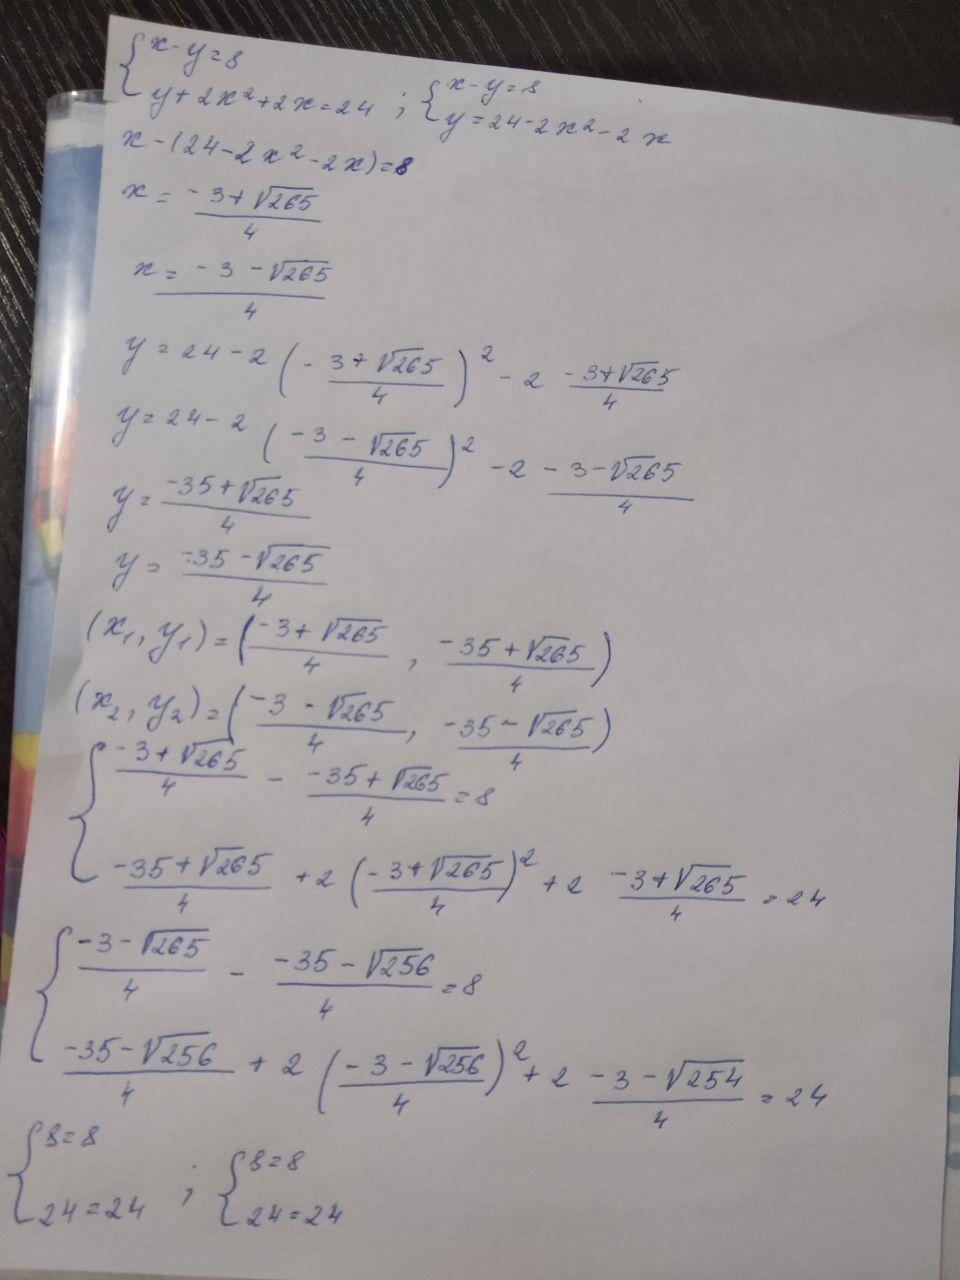 {x-y=8
y+2x²+2x=24 ; {x-y=8
y=24-2x²-2x
x-(24-2x²-2x)=8
x = (-3+√265)/4
x = (-3-√265)/4
y=24-2((-3+√265)/4)²-2 (-3+√265)/4
y=24-2((-3-√265)/4)²-2 (-3-√265)/4
y=(-35+√265)/4
y=(-35-√265)/4
(x₁, y₁)=((-3+√265)/4, (-35+√265)/4)
(x₂, y₂)=((-3-√265)/4, (-35-√265)/4)
{(-3+√265)/4 - (-35+√265)/4=8
(-35+√265)/4+2((-3+√265)/4)²+2 (-3+√265)/4=24
{(-3-√265)/4 - (-35-√256)/4=8
(-35-√256)/4+2((-3-√256)/4)²+2 (-3-√254)/4=24
{8=8
24=24 ; {8=8
24=24